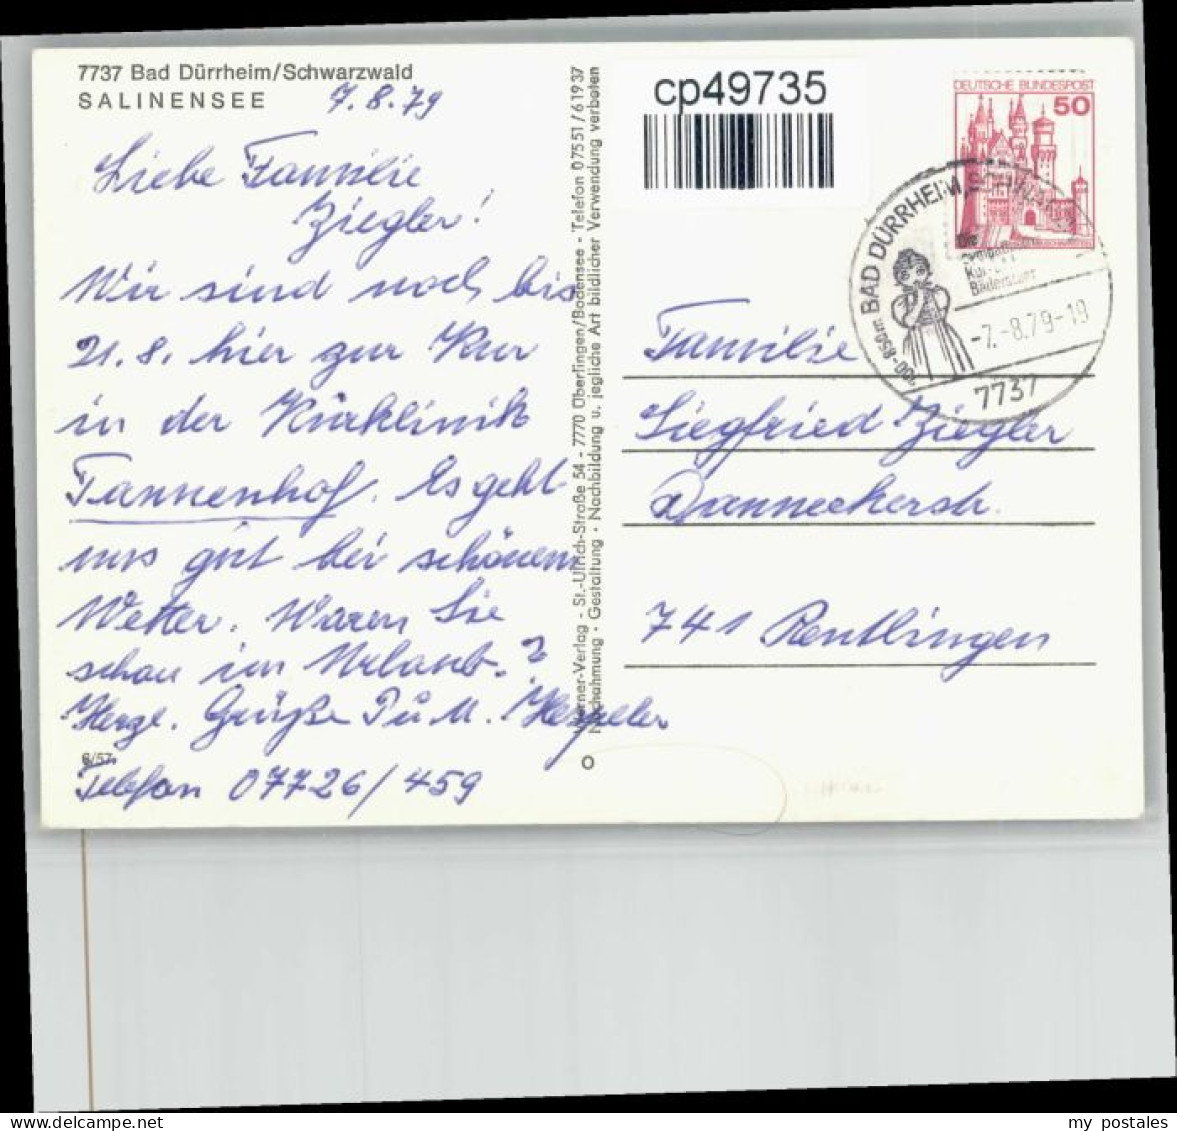 7737 Bad Dürrheim/Schwarzwald
SALINENSEE
7.8.79
Liebe Familie
Ziegler!
Wir sind noch bis
21.8. hier zur Kur
in der Kurklinik
Tannenhof. Es geht
uns gut bei schönem
Wetter. Waren Sie
schon im Urlaub?
Herzl. Grüße P u M. Hespeler
6/57
Telefon 07726/459
Werner-Verlag - St.-Ulrich-Straße 54 - 7770 Überlingen/Bodensee - Telefon 07551/61937
Nachahmung - Gestaltung - Nachbildung u. jegliche Art bildlicher Verwendung verboten
cp49735
DEUTSCHE BUNDESPOST
50
BAD DÜRRHEIM
Die
Kur- 
Bäderstadt
-7.-8.79-19
700-850m
7737
Familie
Siegfried Ziegler
Danneckerstr.
741 Reutlingen
my postales